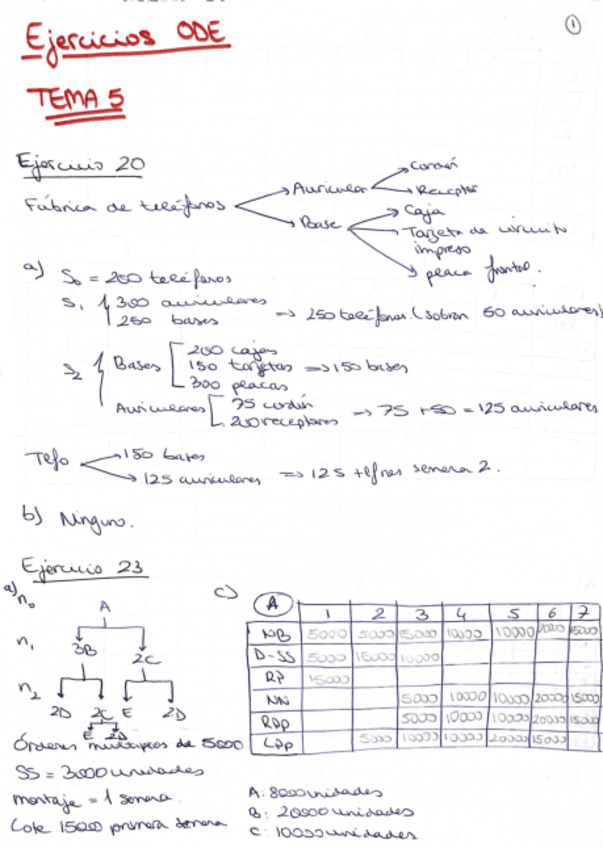 Ejercicios ODE
1
TEMA 5
Ejercicio 20
Fábrica de teléfonos
Auricular
Cordón
Receptor
Base
Caja
Tarjeta de circuito impreso
placa frontal.
a) S₀ = 200 teléfonos
S₁ { 300 auriculares
250 bases
⇒ 250 teléfonos. (sobran 50 auriculares)
S₂ { Bases [ 200 cajas
150 tarjetas ⇒ 150 bases
300 placas
Auriculares [ 75 cordón
200 receptores ⇒ 75 + 50 = 125 auriculares
Tefo
150 bases
125 auriculares ⇒ 125 tefnos semana 2.
b) Ninguno.
Ejercicio 23
a) n₀ A
n₁ 3B 2C
n₂ 2D 2C E 2D
E 2D
Órdenes múltiplos de 5000
SS = 3000 unidades
montaje = 1 semana.
Lote 15000 primera semana
c)
A 1 2 3 4 5 6 7
NB 5000 5000 15000 10000 10000 20000 15000
D-SS 5000 15000 10000
RP 15000
NN 5000 10000 10000 20000 15000
RPp 5000 10000 10000 20000 15000
LPp 5000 10000 10000 20000 15000
A: 8000 unidades
B: 20000 unidades
C: 10000 unidades